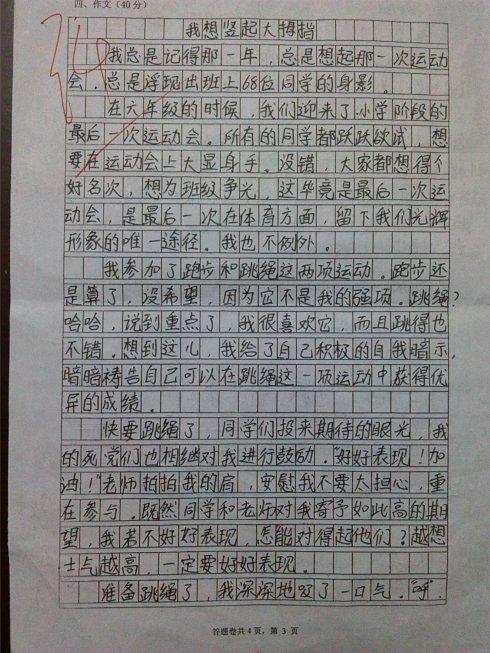 四、作文（40分）
我想竖起大拇指
我总是记得那一年，总是想起那一次运动
会，总是浮现出班上68位同学的身影。
在六年级的时候，我们迎来了小学阶段的
最后一次运动会。所有的同学都跃跃欲试，想
要在运动会上大显身手。没错，大家都想得个
好名次，想为班级争光，这毕竟是最后一次运
动会，是最后一次在体育方面，留下我们光辉
形象的唯一途径。我也不例外。
我参加了跑步和跳绳这两项运动。跑步还
是算了，没希望，因为它不是我的强项。跳绳？
哈哈，说到重点了，我很喜欢它，而且跳得也
不错。想到这儿，我给了自己积极的自我暗示，
暗暗祷告自己可以在跳绳这一项运动中获得优
异的成绩。
快要跳绳了，同学们投来期待的眼光，我
的死党们也相继对我进行鼓动。“好好表现！加
油！”老师拍拍我的肩，安慰我不要太担心，重
在参与。既然同学和老师对我寄予如此高的期
望，我若不好好表现，怎能对得起他们？越想
士气越高，一定要好好表现。
准备跳绳了，我深深地吸了一口气。“呼
答题卷共4页，第 3 页